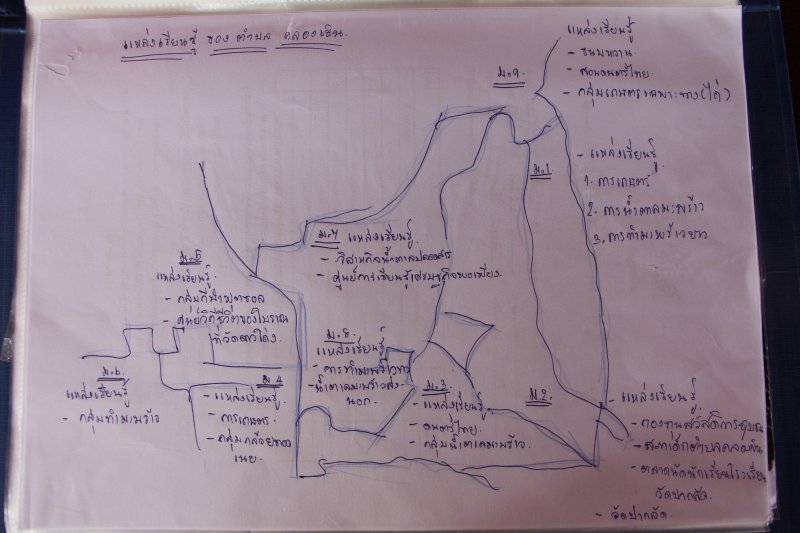 แหล่งเรียนรู้ ของ ตำบล คลองเขิน
ม.9.
แหล่งเรียนรู้
- ขนมหวาน
- สอนดนตรีไทย.
- กลุ่มเกษตรเฉพาะทาง(ไก่)
ม.1
- แหล่งเรียนรู้
1. การเกษตร
2. การน้ำตาลมะพร้าว
3. การทำมะพร้าวขาว
ม.7 แหล่งเรียนรู้
- วิสาหกิจน้ำตาลปลอดสาร
- ศูนย์การเรียนรู้เศรษฐกิจพอเพียง.
ม.5
แหล่งเรียนรู้.
- ศูนย์วิถีชีวิตของโบราณ
ม.8.
แหล่งเรียนรู้
- การทำมะพร้าวขาว
- น้ำตาลมะพร้าวส่ง-
นอก.
ม.6.
แหล่งเรียนรู้
- กลุ่มทำมะพร้าว
ม.4
- แหล่งเรียนรู้.
- การเกษตร.
ม.3.
- แหล่งเรียนรู้.
- ดนตรีไทย.
- กลุ่มน้ำตาลมะพร้าว.
ม.2.
- แหล่งเรียนรู้
- กองทุนสวัสดิการชุมชน
- สภาเด็กตำบลคลองเขิน
- ตลาดนัดนักเรียนโรงเรียน
วัดปากลัด.
- วัดปากลัด